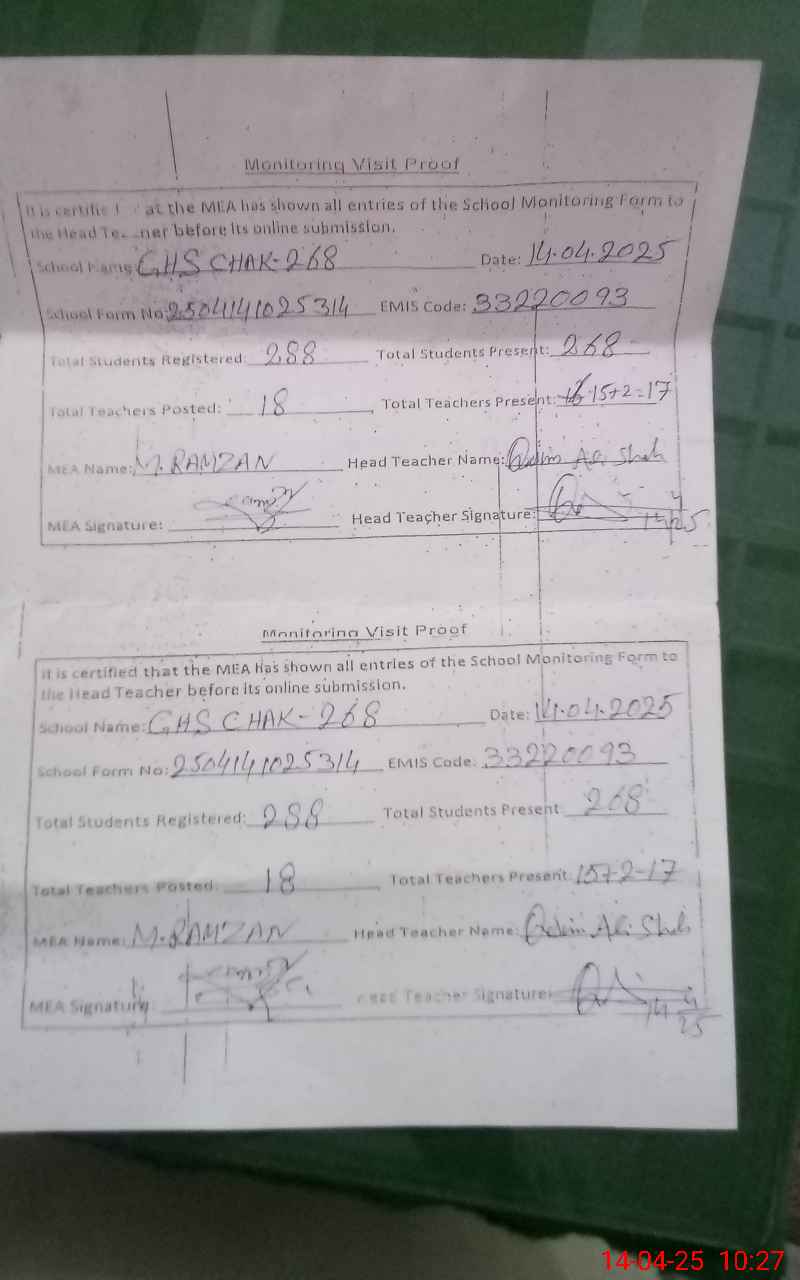 Monitoring Visit Proof
It is certified at the MEA has shown all entries of the School Monitoring Form to
the Head before its online submission.
School Name GHS CHAK-268 Date: 14.04.2025
School Form No: 2504141025314 EMIS Code: 33220093
Total Students Registered: 288 Total Students Present: 268
Total Teachers Posted: 18 Total Teachers Present: 15+2=17
MEA Name: M. RAMZAN Head Teacher Name: Ali Shah
MEA Signature: Head Teacher Signature:
Monitoring Visit Proof
It is certified that the MEA has shown all entries of the School Monitoring Form to
the Head Teacher before its online submission.
School Name: GHS CHAK-268 Date: 14.04.2025
School Form No: 2504141025314 EMIS Code: 33220093
Total Students Registered: 288 Total Students Present 268
Total Teachers Posted: 18 Total Teachers Present: 15+2-17
MEA Name: M. RAMZAN Head Teacher Name: Ali Shah
MEA Signature: Head Teacher Signature:
14-04-25 10:27